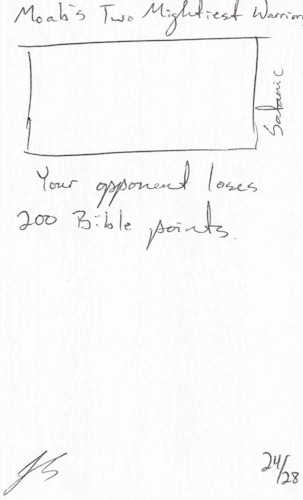 Moab's Two Mightiest Warrior
Satanic
Your opponent loses
200 Bible points.
JS
24/28